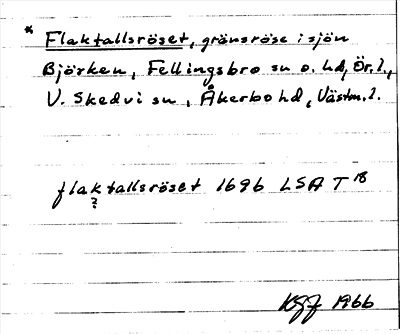 * Flaktallsröset, gränsröse i sjön
Björken, Fellingsbro sn o. hd, Ör.l.,
V. Skedvi sn, Åkerbo hd, Västm.l.
flaktallsröset 1696 LSA T 18
?
1966